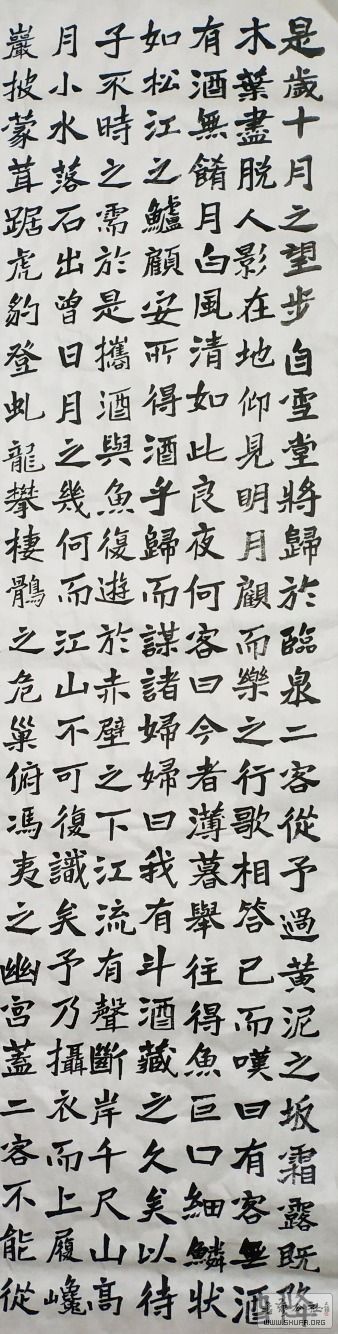 是歲十月之望步自雪堂將歸於臨泉二客從予過黃泥之坂霜露既降
木葉盡脫人影在地仰見明月顧而樂之行歌相答已而嘆曰有客無酒
有酒無餚月白風清如此良夜何客曰今者薄暮舉往得魚巨口細鱗狀
如松江之鱸顧安所得酒乎歸而謀諸婦婦曰我有斗酒藏之久矣以待
子不時之需於是攜酒與魚復遊於赤壁之下江流有聲斷岸千尺山高
月小水落石出曾日月之幾何而江山不可復識矣予乃攝衣而上履巉
巖披蒙茸踞虎豹登虬龍攀棲鶻之危巢俯馮夷之幽宮蓋二客不能從
WWW.SHUFA.ORG